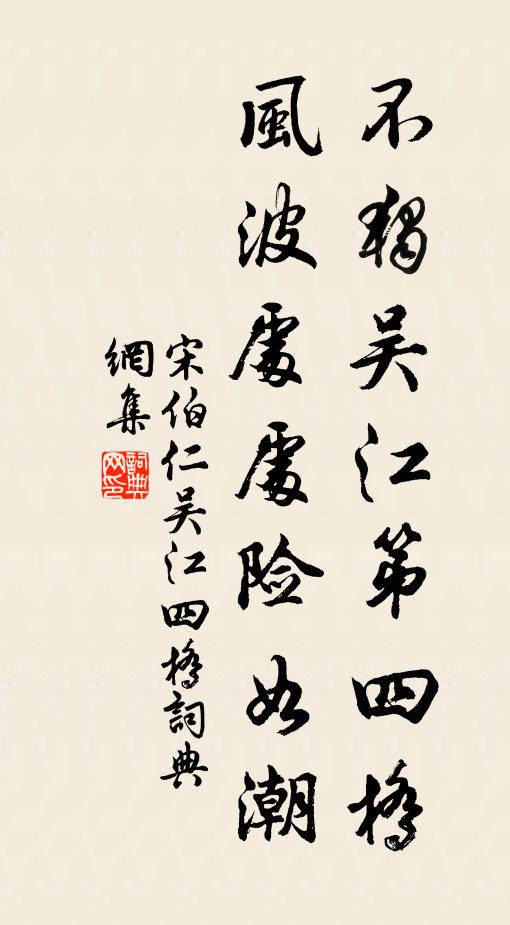 不獨吴江第四橋
風波處處险如潮
宋伯仁吴江四橋詞典
網集
詞典網印